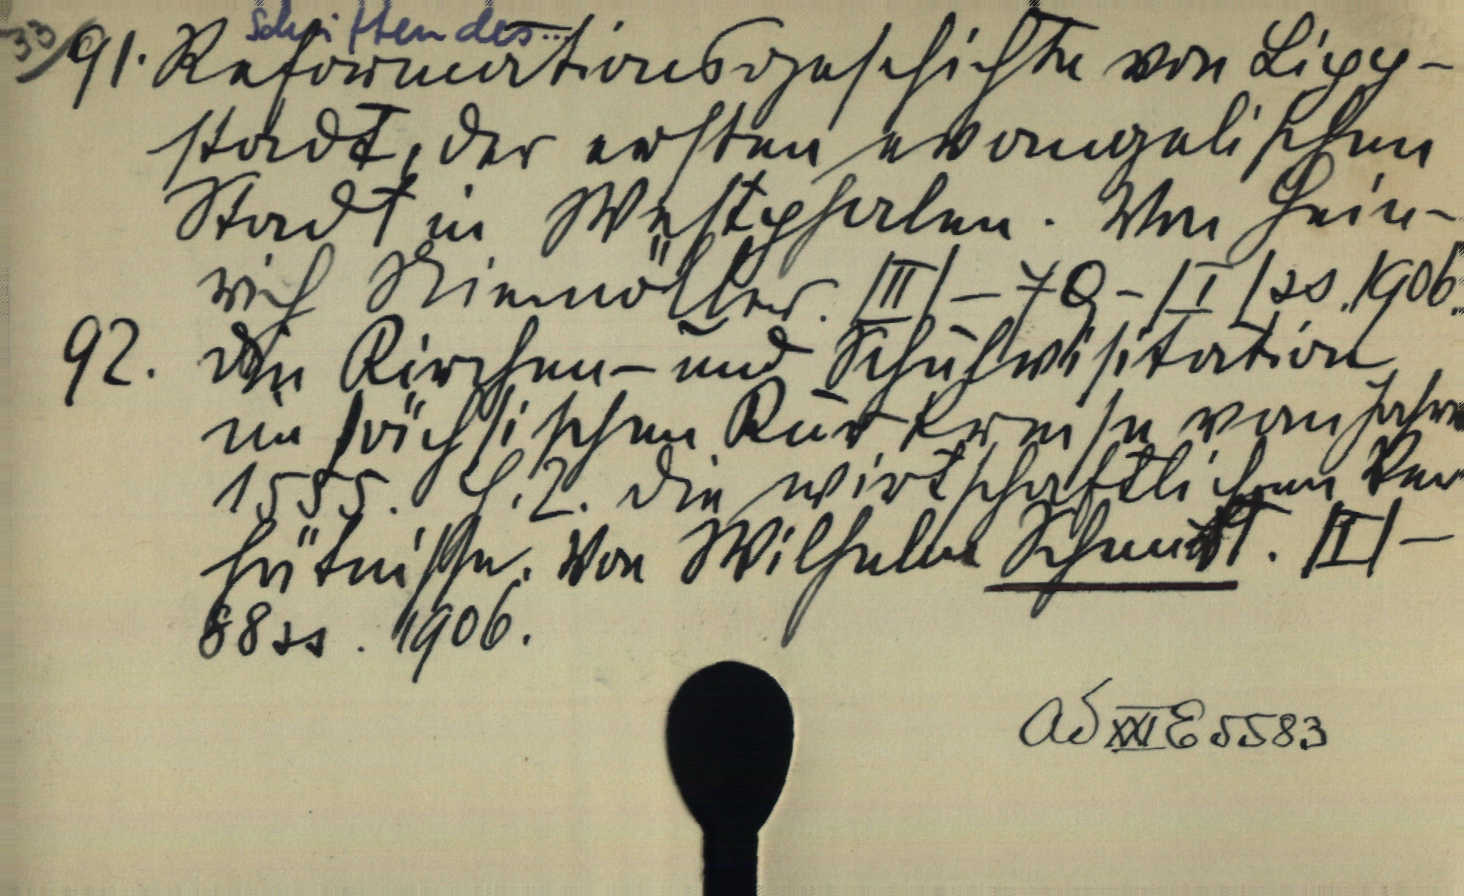 33
Schriften des...
91. Reformationsgeschichte von Lipp-
stadt, der ersten evangelischen
Stadt in Westphalen. Von Hein-
rich Niemöller. |II| – 79 – |I| ss. 1906.
92. Die Kirchen- und Schulvisitation
im sächsischen Kurkreise vom Jahre
1555. H. 2. Die wirtschaftlichen Ver
hätnisse. Von Wilhelm Schmidt. |II| –
88 ss. 1906.
AS XXI E 5583